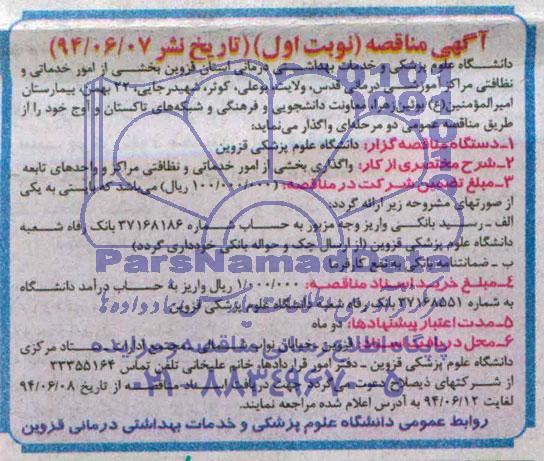 آگهی مناقصه (نوبت اول) (تاریخ نشر ۹۴/۰۶/۰۷)
دانشگاه علوم پزشکی و خدمات بهداشتی درمانی استان قزوین بخشی از امور خدماتی و
نظافتی مراکز آموزشی درمانی قدس، ولایت، بوعلی، کوثر، شهیدرجایی، ۲۲ بهمن، بیمارستان
امیرالمؤمنین(ع) بوئین‌زهرا، معاونت دانشجویی و فرهنگی و شبکه‌های تاکستان و آوج خود را از
طریق مناقصه عمومی دو مرحله‌ای واگذار می‌نماید:
۱-دستگاه مناقصه گزار: دانشگاه علوم پزشکی قزوین
۲-شرح مختصری از کار: واگذاری بخشی از امور خدماتی و نظافتی مراکز و واحدهای تابعه
۳-مبلغ تضمین شرکت در مناقصه: (۱۰۰/۰۰۰/۰۰۰ ریال) می‌باشد که بایستی به یکی
از صورتهای مشروحه زیر ارائه گردد:
الف - رسید بانکی واریز وجه مزبور به حساب شماره ۳۷۱۶۸۱۸۶ بانک رفاه شعبه
دانشگاه علوم پزشکی قزوین (از ارسال چک و حواله بانکی خودداری گردد)
ب - ضمانتنامه بانکی به نفع کارفرما
۴-مبلغ خرید اسناد مناقصه: ۱/۰۰۰/۰۰۰ ریال واریز به حساب درآمد دانشگاه
به شماره ۳۷۱۶۸۵۵۱ بانک رفاه شعبه دانشگاه علوم پزشکی قزوین
۵-مدت اعتبار پیشنهادها: دو ماه
۶-محل دریافت اسناد: قزوین - خیابان نواب شمالی - مجتمع ادارات ستاد مرکزی
دانشگاه علوم پزشکی قزوین - دفتر امور قراردادها، خانم علیخانی تلفن تماس ۳۳۳۵۵۱۶۴
از شرکتهای ذیصلاح دعوت می‌گردد جهت دریافت اسناد مناقصه از تاریخ ۹۴/۰۶/۰۸
لغایت ۹۴/۰۶/۱۲ به آدرس اعلام شده مراجعه نمایند.
روابط عمومی دانشگاه علوم پزشکی و خدمات بهداشتی درمانی قزوین
ParsNamadData
پایگاه اطلاع رسانی مناقصه و مزایده
۰۲۱-۸۸۳۴۹۶۷۰-۵